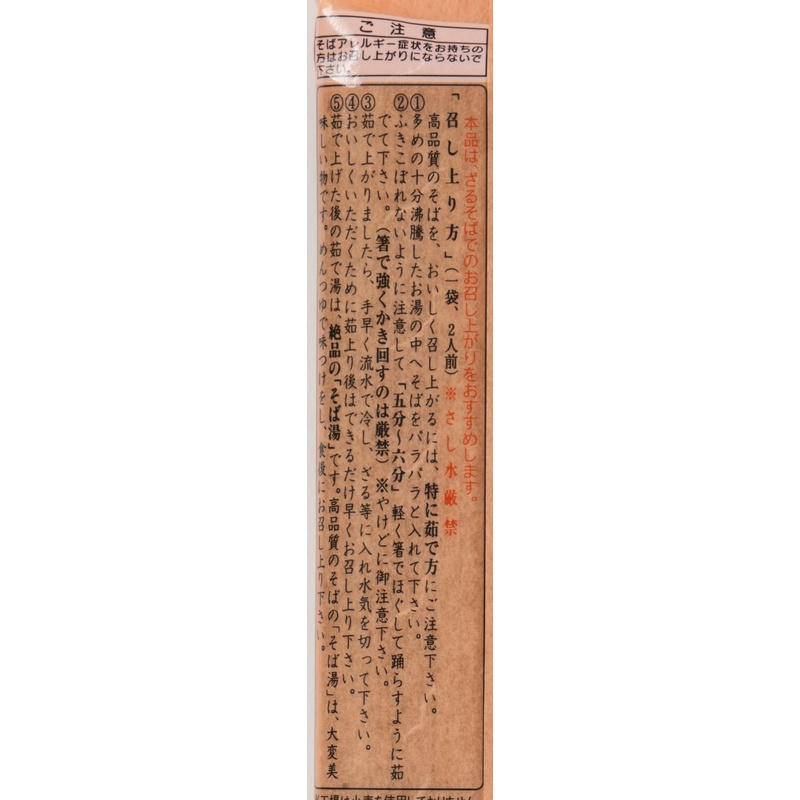 ご注意
そばアレルギー症状をお持ちの
方はお召し上がりにならないで
下さい。
本品は、ざるそばでのお召し上がりをおすすめします。
「召し上り方」（一袋、2人前）※さし水厳禁
高品質のそばを、おいしく召し上がるには、特に茹で方にご注意下さい。
①多めの十分沸騰したお湯の中へそばをパラパラと入れて下さい。
②ふきこぼれないように注意して「五分〜六分」軽く箸でほぐして踊らすように茹
でて下さい。（箸で強くかき回すのは厳禁）※やけどに御注意下さい。
③茹で上がりましたら、手早く流水で冷し、ざる等に入れ水気を切って下さい。
④おいしくいただくために茹上り後はできるだけ早くお召し上り下さい。
⑤茹で上げた後の茹で湯は、絶品の「そば湯」です。高品質のそばの「そば湯」は、大変美
味しい物です。めんつゆで味つけをし、食後にお召し上り下さい。